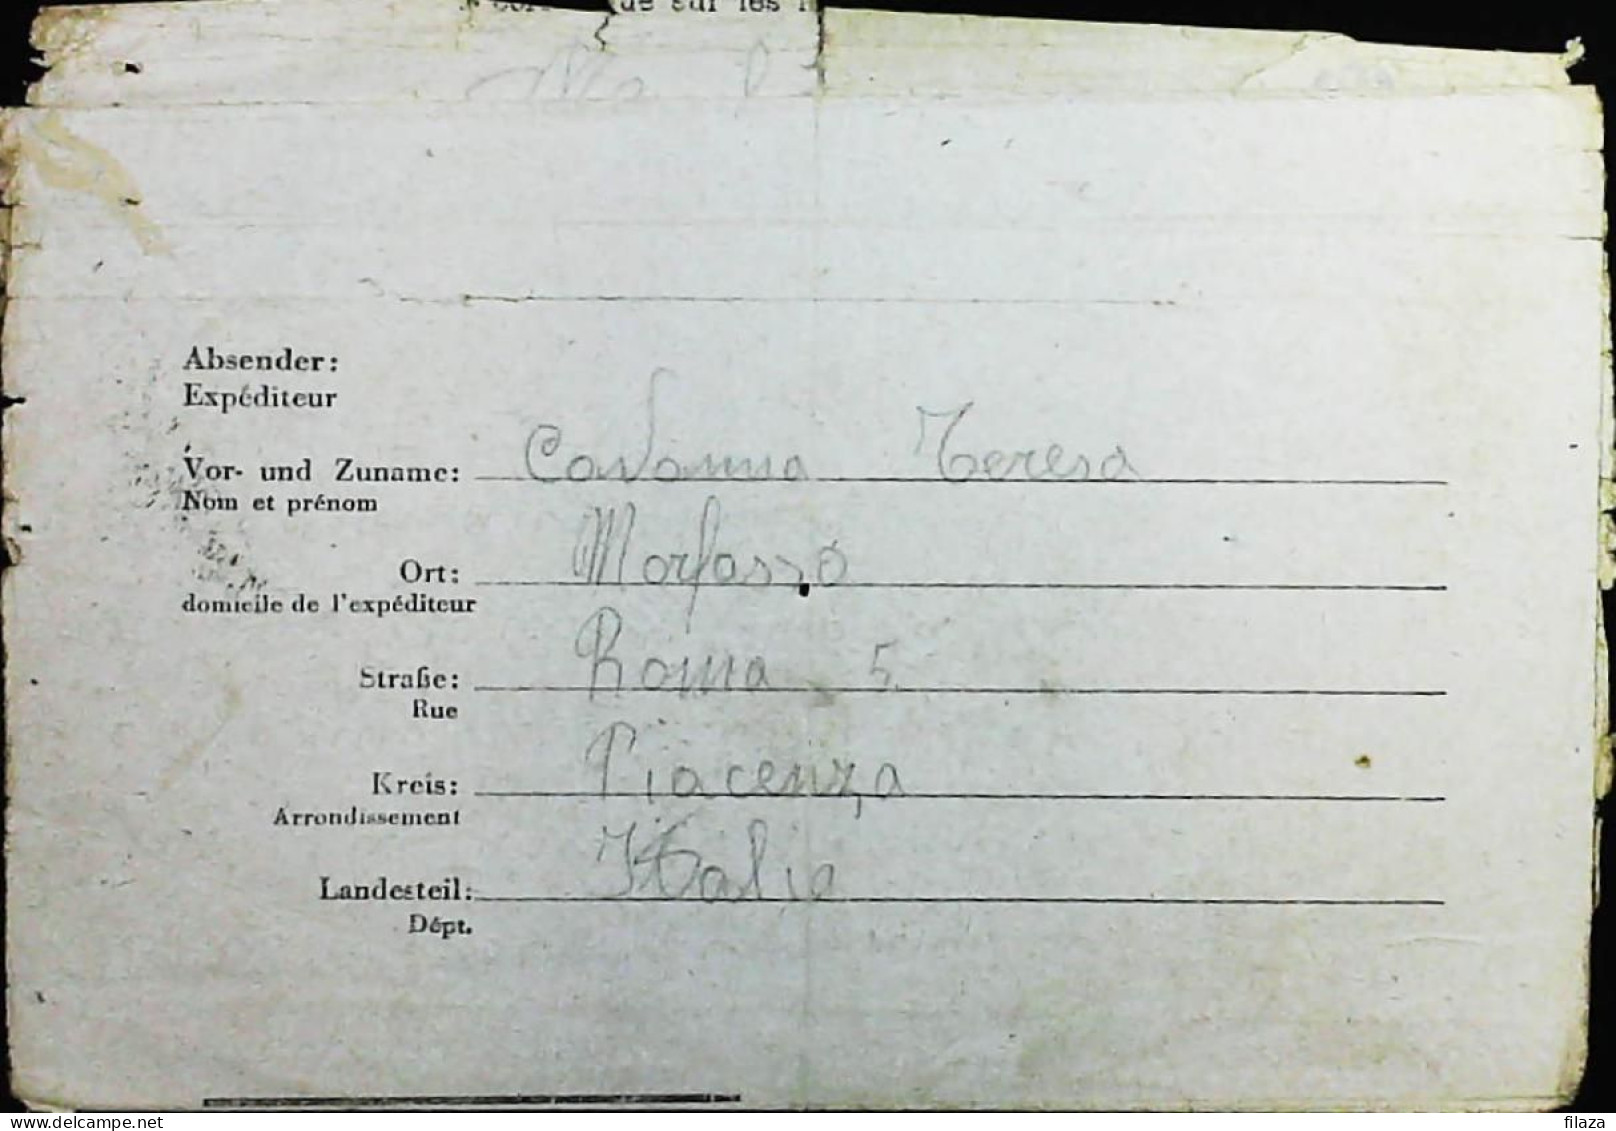 que sur les
Absender:
Expéditeur
Vor- und Zuname: Cavanna Teresa
Nom et prénom
Ort: Morfasso
domicile de l'expéditeur
Straße: Roma 5
Rue
Kreis: Piacenza
Arrondissement
Landesteil: Italia
Dépt.
delcampe.net
filaza